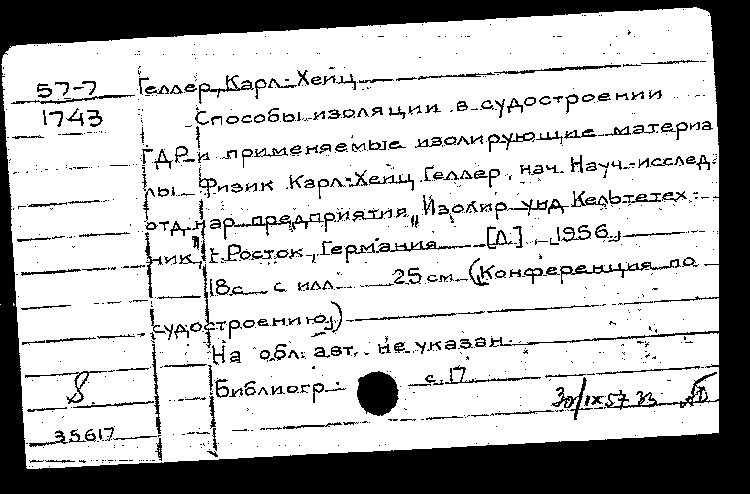 57-7 Геллер, Карл-Хейц
1743 Способы изоляции в судостроении
ГДР и применяемые изолирующие материа
лы Физик Карл-Хейц Геллер, нач. Науч.-исслед.
отд. нар предприятия „Изолир унд Кельтетех-
ник", г. Росток, Германия [Л.], 1956,
18с. с илл 25 см (Конференция по
судостроению)
На обл. авт. не указан.
Библиогр.: с. 17
8.
30/IX 57
35617